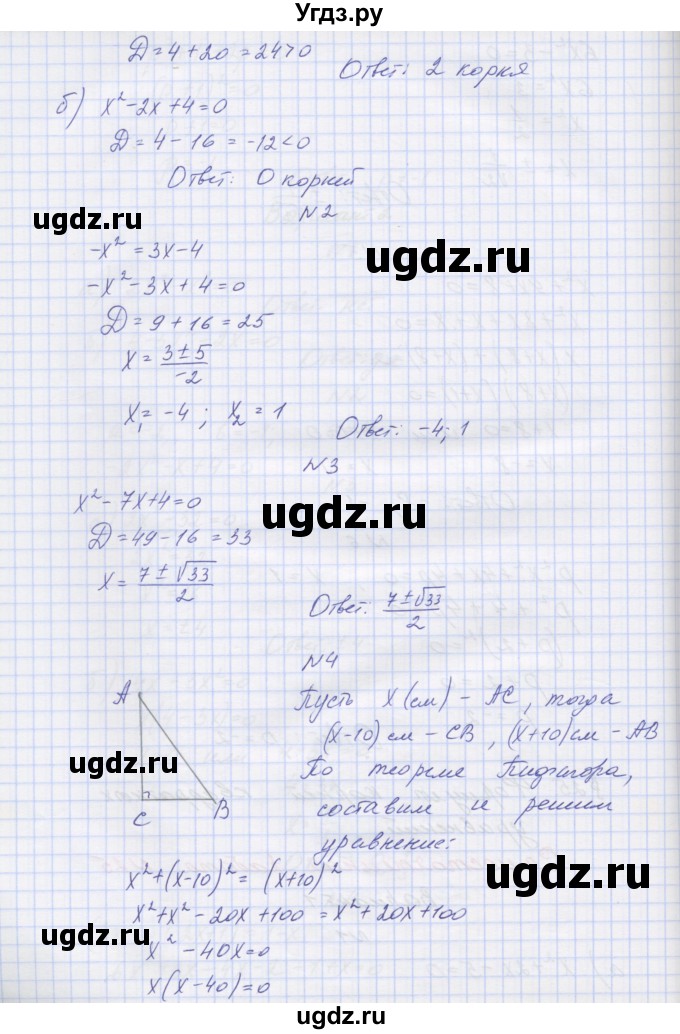 Угдз.ру
D = 4 + 20 = 24 > 0
Ответ: 2 корня
б) x² - 2x + 4 = 0
D = 4 - 16 = -12 < 0
Ответ: 0 корней
ugdz.ru
N2
-x² = 3x - 4
ugdz.ru
-x² - 3x + 4 = 0
D = 9 + 16 = 25
x = (3 ± 5)/-2
ugdz.ru
x₁ = -4 ; x₂ = 1
Ответ: -4; 1
N3
x² - 7x + 4 = 0
ugdz.ru
D = 49 - 16 = 33
x = (7 ± √33)/2
Ответ: (7 ± √33)/2
ugdz.ru
N4
A
Пусть x (см) - AC, тогда
(x-10) см - CB, (x+10) см - AB
ugdz.ru
По теореме Пифагора,
C B
составим и решим
уравнение:
x² + (x-10)² = (x+10)²
ugdz.ru
x² + x² - 20x + 100 = x² + 20x + 100
ugdz.ru
x² - 40x = 0
x(x - 40) = 0
ugdz.ru